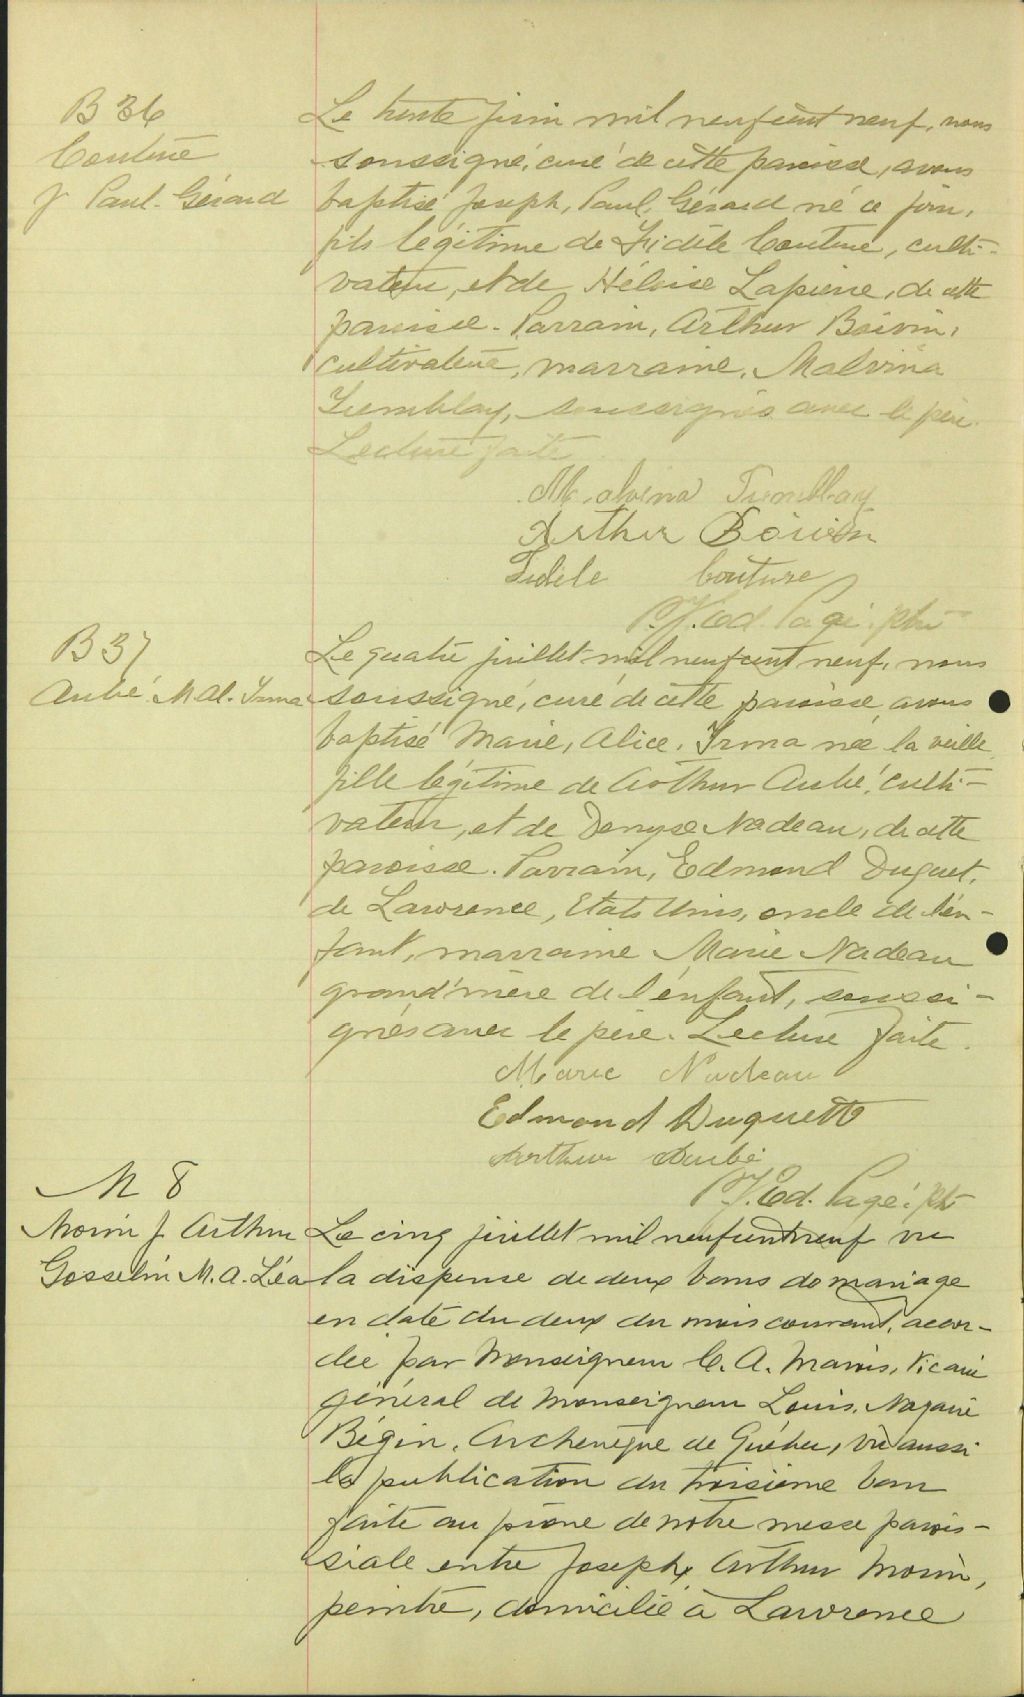 B 36
Couture
J Paul-Gérard
Le trente juin mil neuf cent neuf, nous
soussigné, curé de cette paroisse, avons
baptisé Joseph, Paul, Gérard né ce jour,
fils légitime de Fidèle Couture, culti-
vateur, et de Héloïse Lapierre, de cette
paroisse. Parrain, Arthur Boivin,
cultivateur, marraine, Malvina
Tremblay, soussignés avec le père.
Lecture faite.
Malvina Tremblay
Arthur Boivin
Fidele Couture
P. J. Ed. Pagé. ptre
B 37
Aubé M Al. Irma
Le quatre juillet mil neuf cent neuf, nous
soussigné, curé de cette paroisse, avons
baptisé Marie, Alice, Irma née la veille
fille légitime de Arthur Aubé, culti-
vateur, et de Denyse Nadeau, de cette
paroisse. Parrain, Edmond Duquet,
de Lawrence, Etats Unis, oncle de l'en-
fant, marraine Marie Nadeau
grand'mère de l'enfant, soussi-
gnés avec le père. Lecture faite.
Marie Nadeau
Edmond Duquette
Arthur Aubé
P. J. Ed. Pagé. ptr
M 8
Morin J. Arthur
Gosselin M. A. Léa
Le cinq juillet mil neuf cent neuf vu
la dispense de deux bans de mariage
en date du deux du mois courant, accor-
dée par Monseigneur C. A. Marois, Vicaire
général de Monseigneur Louis, Nazaire
Bégin, Archevêque de Québec, vu aussi
la publication du troisième ban
faite au prône de notre messe parois-
siale entre Joseph, Arthur Morin,
peintre, domicilié à Lawrence